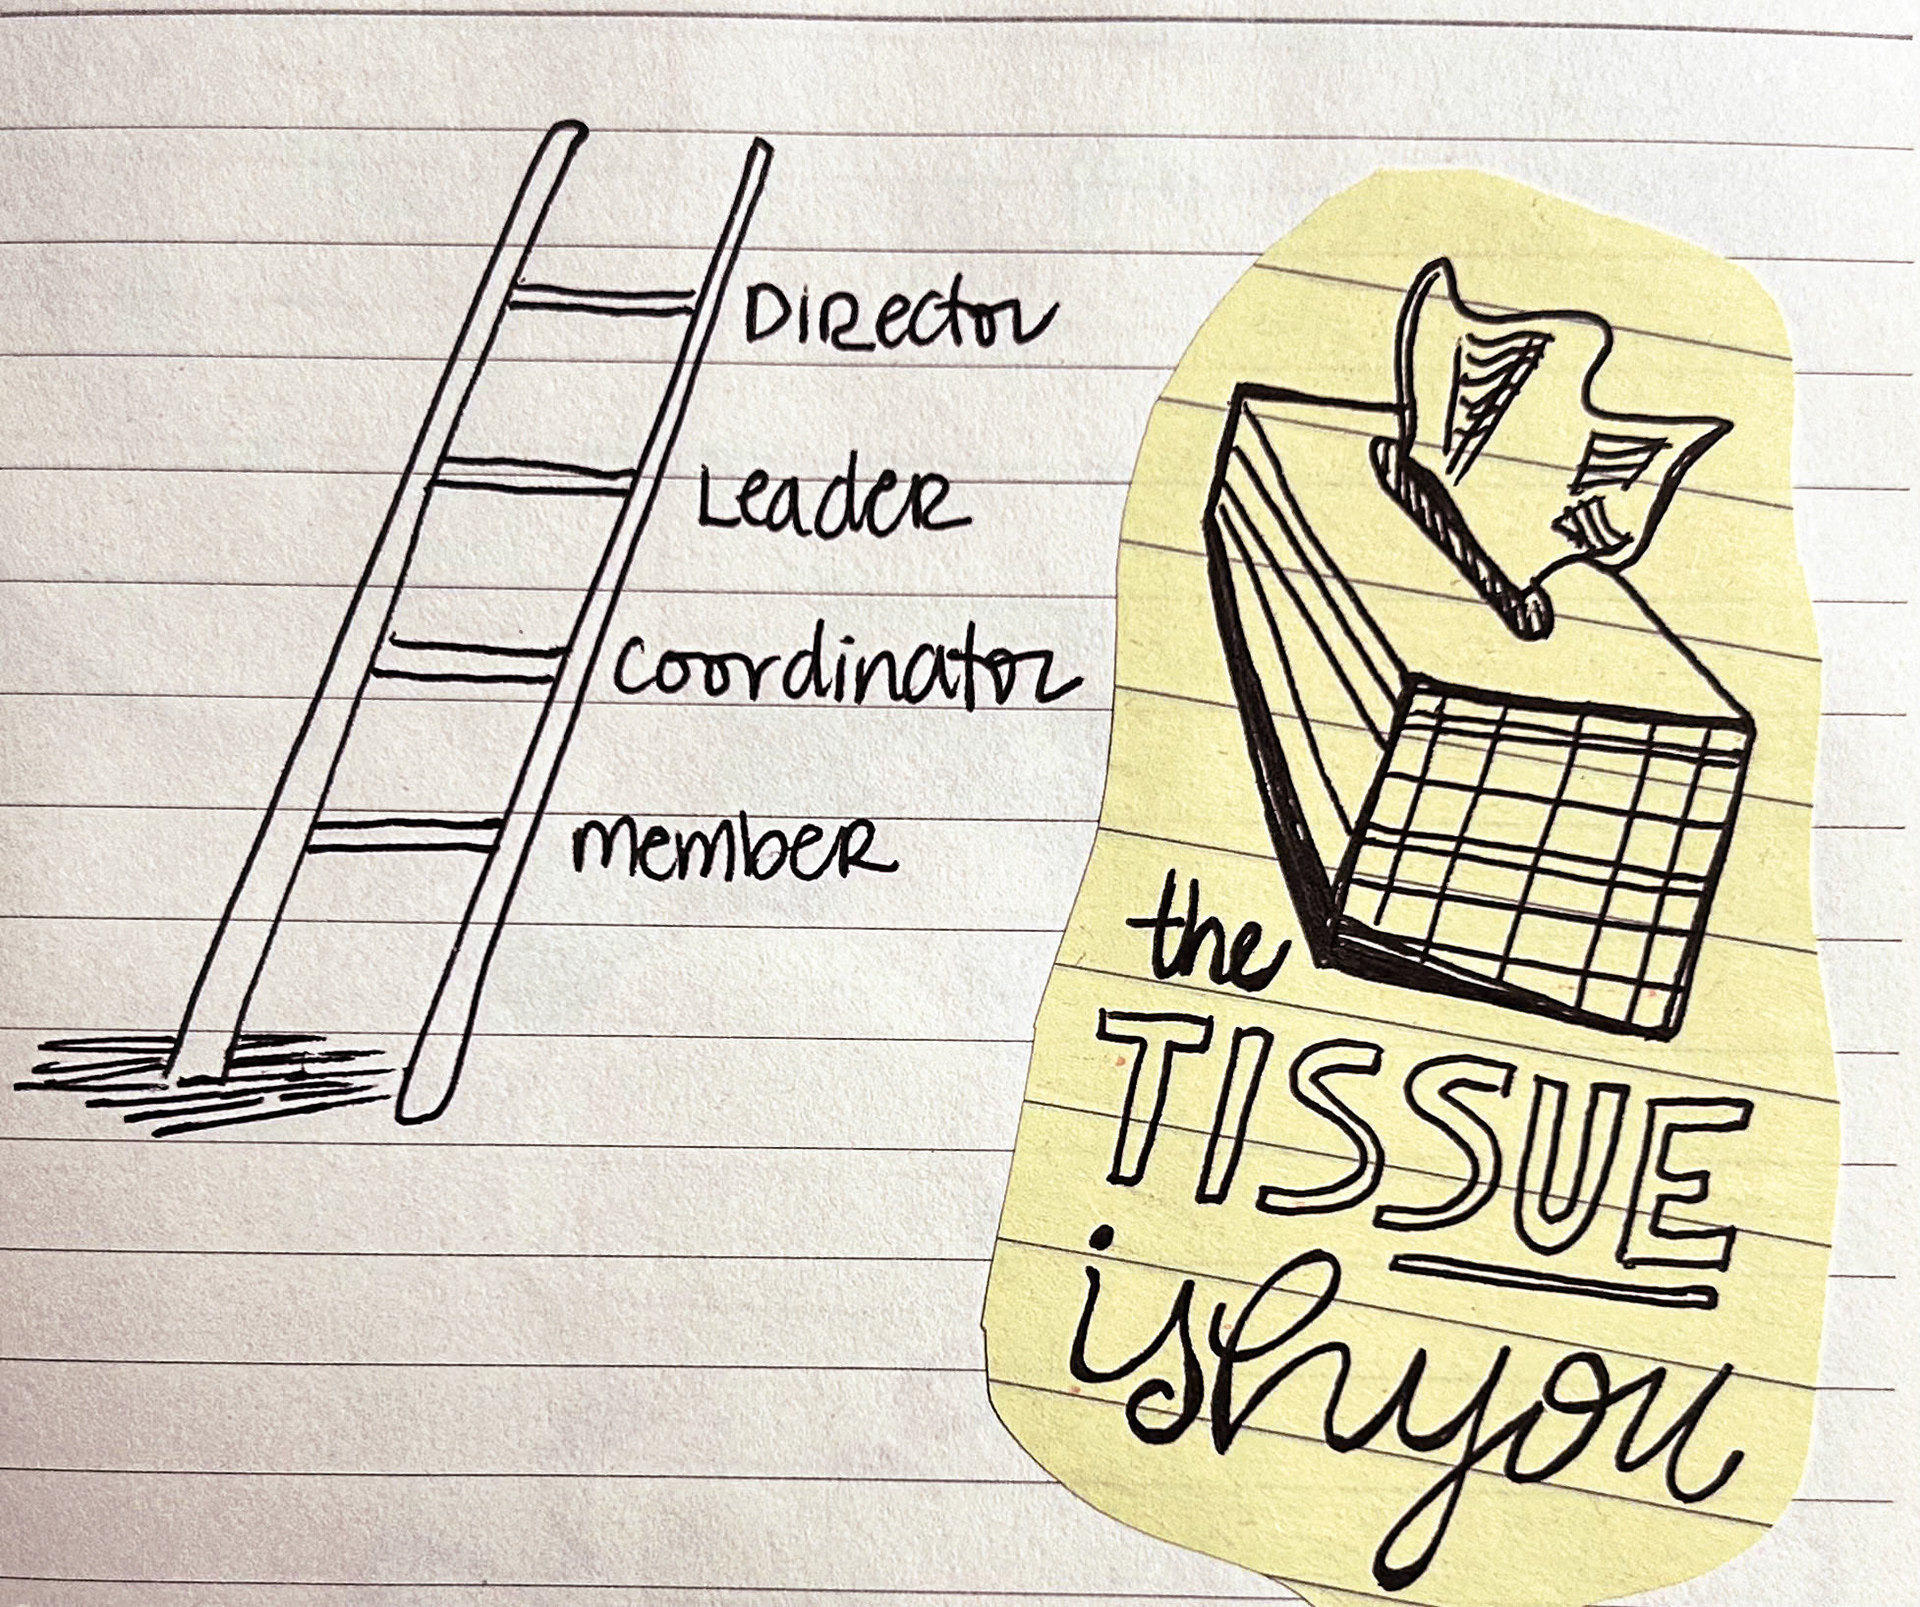 Director
Leader
coordinator
member
the
TISSUE
ishyou